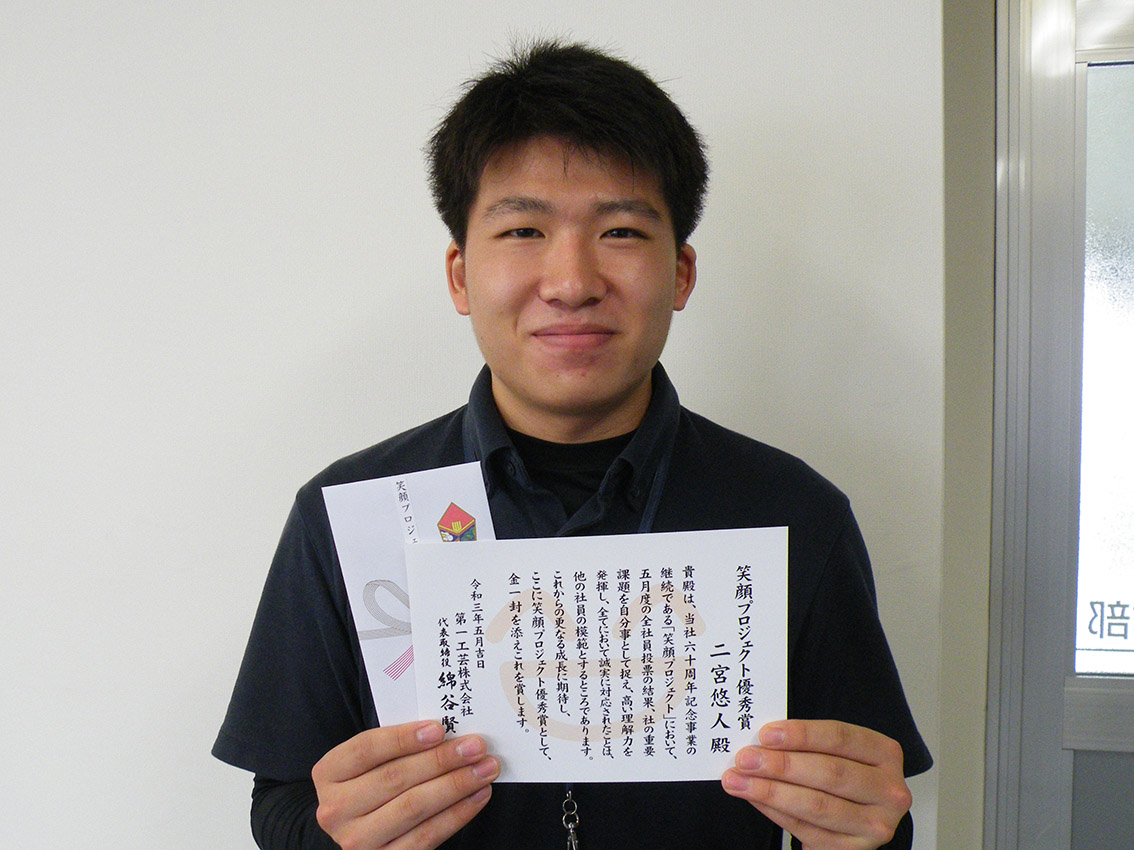 笑顔プロジェクト優秀賞
二宮悠人 殿
貴殿は、当社六十周年記念事業の
継続である「笑顔プロジェクト」において、
五月度の全社員投票の結果、社の重要
課題を自分事として捉え、高い理解力を
発揮し、全てにおいて誠実に対応されたことは、
他の社員の模範とするところであります。
これからの更なる成長に期待し、
ここに笑顔プロジェクト優秀賞として、
金一封を添えこれを賞します。
令和三年五月吉日
第一工芸株式会社
代表取締役 綿谷賢
笑顔プロジェ
部